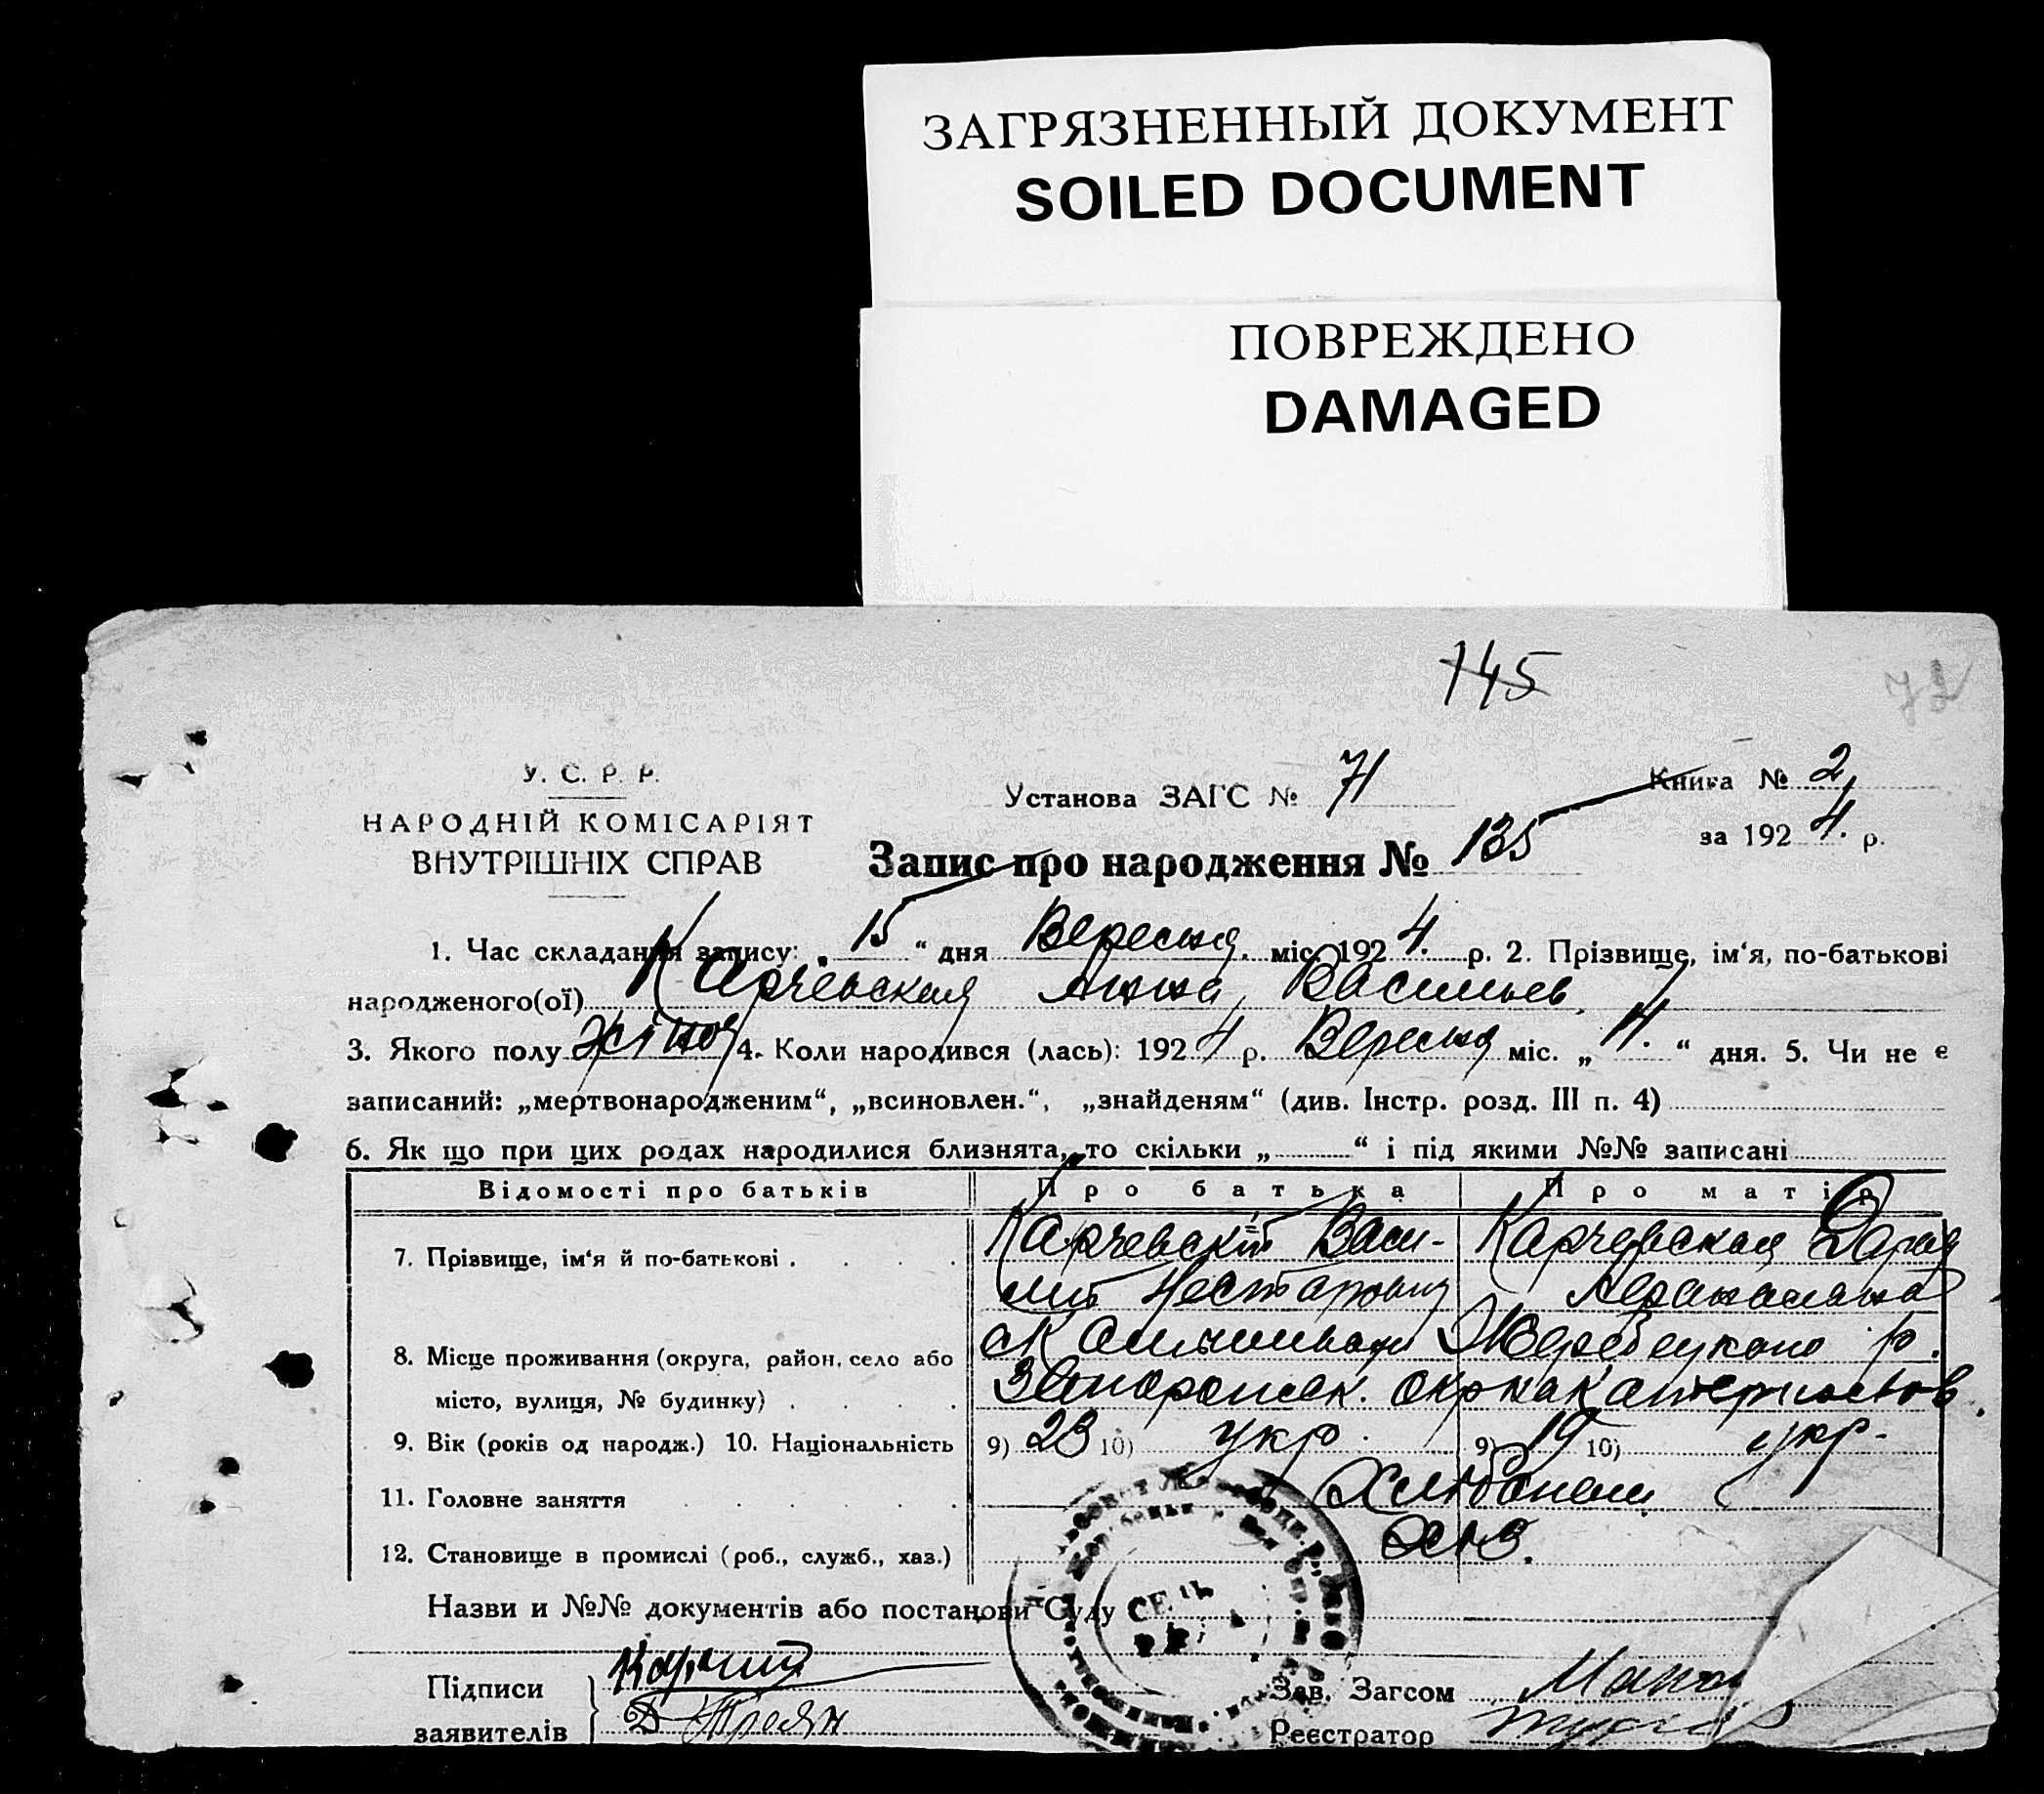 ЗАГРЯЗНЕННЫЙ ДОКУМЕНТ
SOILED DOCUMENT
ПОВРЕЖДЕНО
DAMAGED
145
72
У. С. Р. Р.
НАРОДНІЙ КОМІСАРІЯТ
ВНУТРІШНІХ СПРАВ
Установа ЗАГС № 71
Книга № 2
за 1924 р.
Запис про народження № 135
1. Час складання запису: „15“ дня Вересня міс. 1924. р. 2. Прізвище, ім‘я, по-батькові
народженого(ої) Карчевская Анна Васильев
3. Якого полу жіноч 4. Коли народився (лась): 1924 р. Вересня міс. „ “ дня. 5. Чи не є
записаний: „мертвонародженим“, „всиновлен.“, „знайденям“ (див. Інстр. розд. III п. 4)
6. Як що при цих родах народилися близнята, то скільки „ “ і під якими №№ записані
Відомості про батьків Про батька Про матір
7. Прізвище, ім‘я й по-батькові . Карчевский Васи- Карчевская Дарья
лий Нестарович
8. Місце проживання (округа, район, село або Жеребецкого р.
місто, вулиця, № будинку) . Запорожск. окр
9. Вік (років од народж.) 10. Національність 9) 23 10) укр. 9) 19 10) укр.
11. Головне заняття Хлібопаш
12. Становище в промислі (роб., служб., хаз.) Хаз.
Назви и №№ документів або постанови Суду
Підписи
заявителів Д Троян
Зав. Загсом
Реєстратор